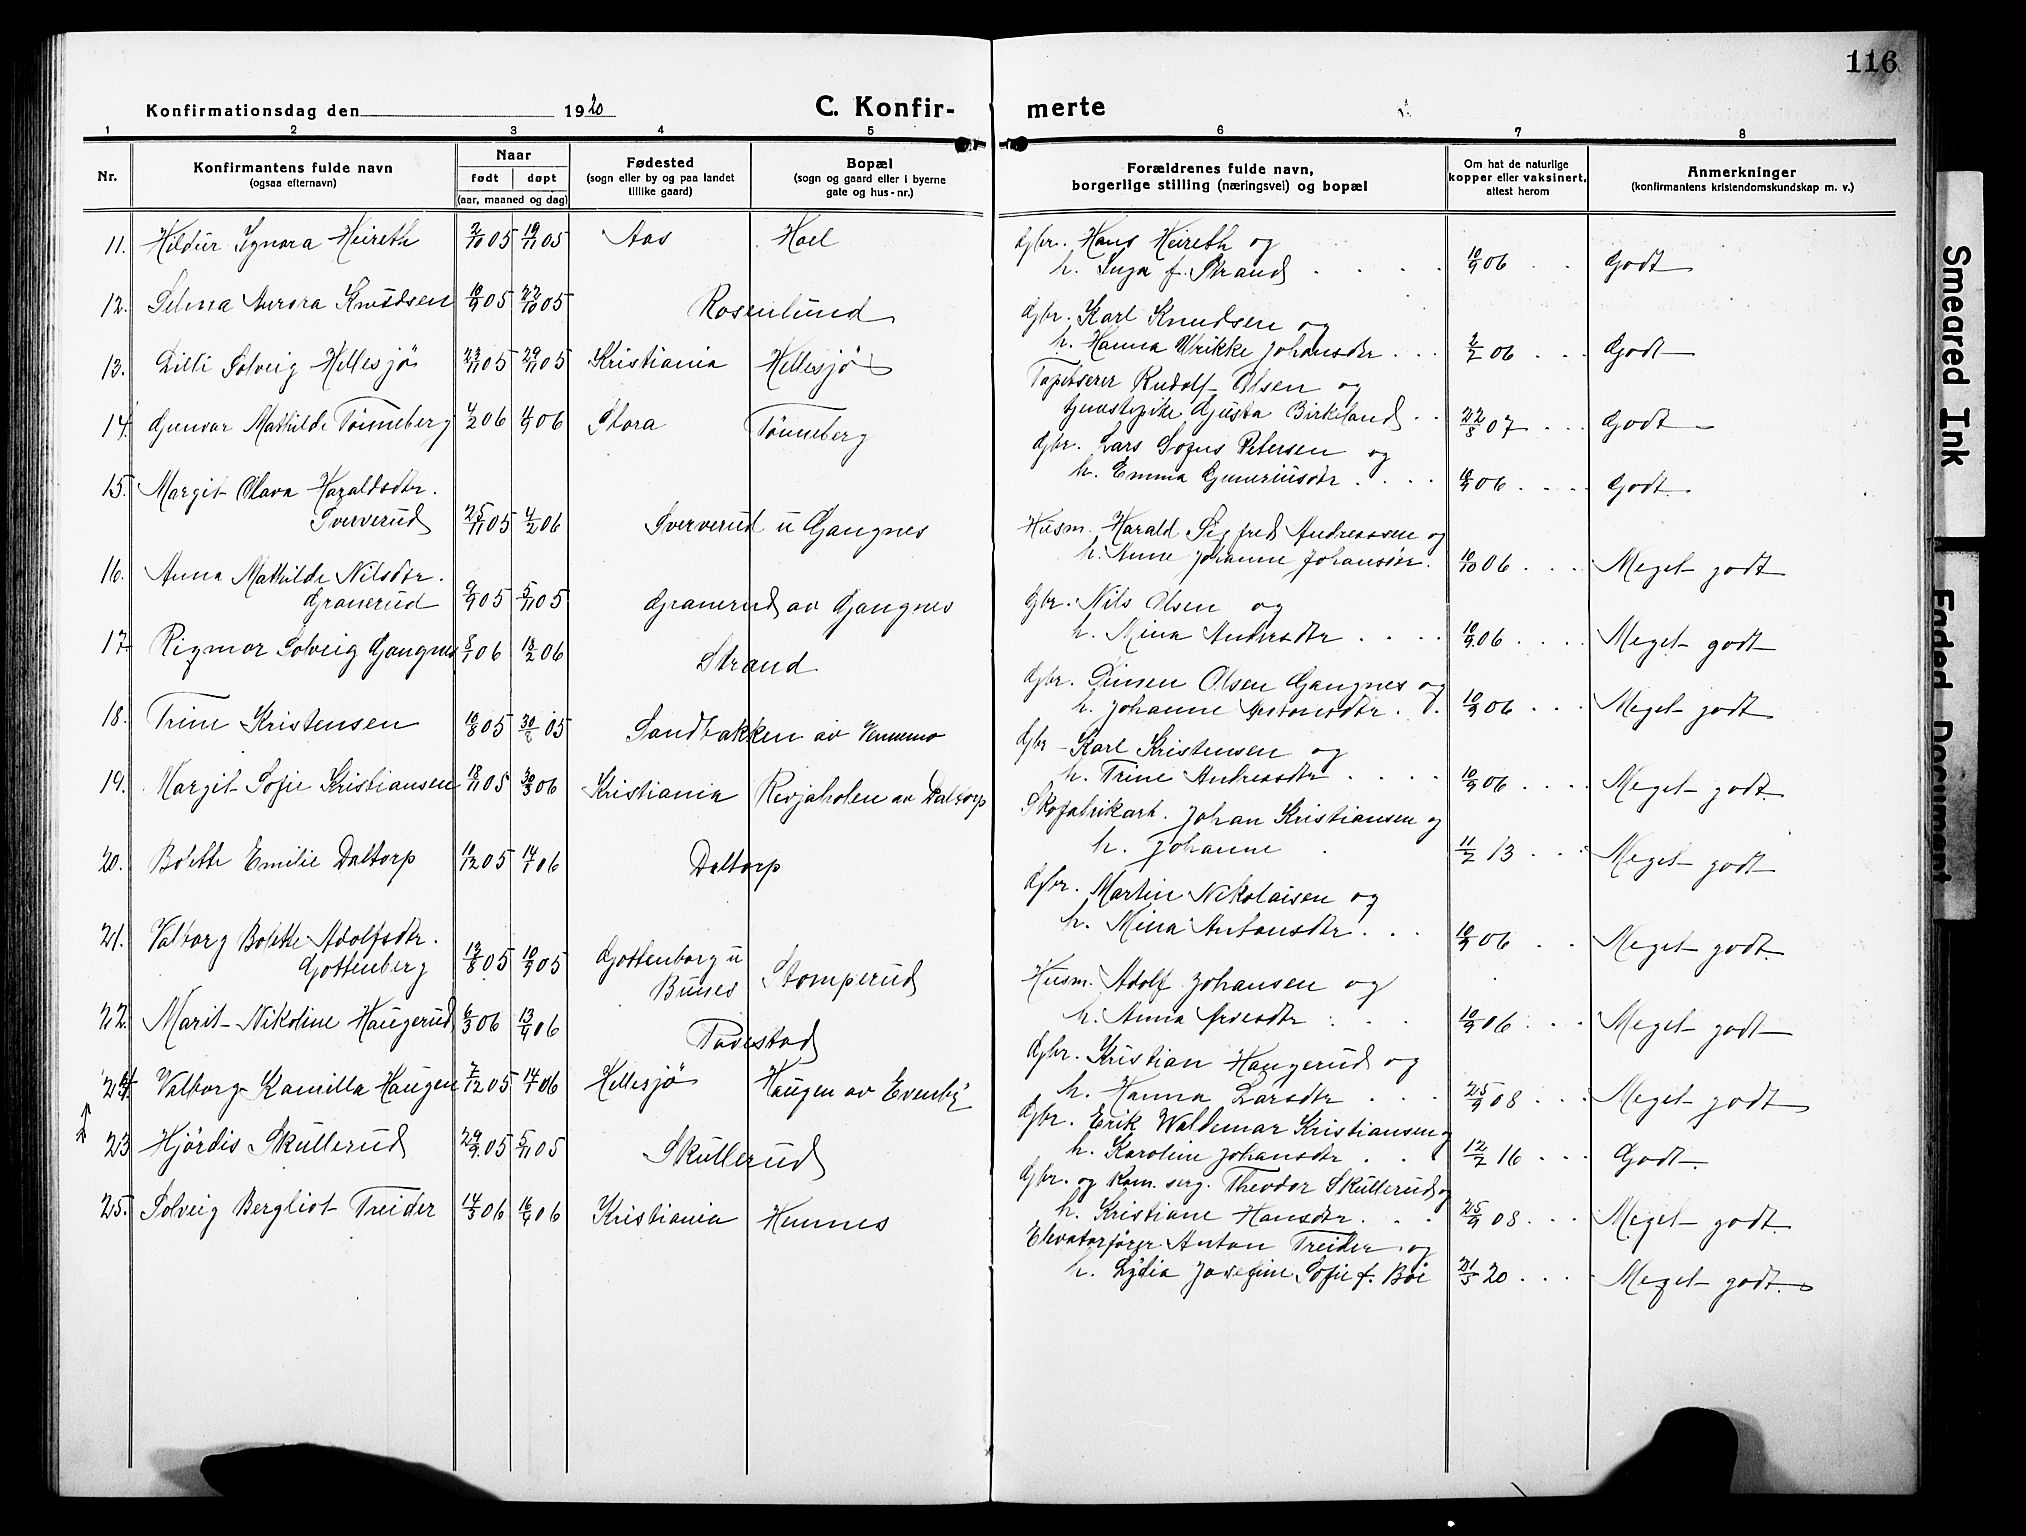 116
Konfirmationsdag den 1920 C. Konfirmerte
1 2 3 4 5 6 7 8
Nr.
Konfirmantens fulde navn
(ogsaa efternavn)
Naar
født døpt
(aar, maaned og dag)
Fødested
(sogn eller by og paa landet
tillike gaard)
Bopæl
(sogn og gaard eller i byerne
gate og hus-nr.)
Forældrenes fulde navn,
borgerlige stilling (næringsvei) og bopæl
Om hat de naturlige
kopper eller vaksinert,
attest herom
Anmerkninger
(konfirmantens kristendomskundskap m. v.)
11. Hildur Signora Heireth 2/10 05 19/11 05 Aas Hoel Gbr. Hans Heireth og
h. Inga f. Strand 10/9 06 Godt
12. Selma Aurora Knudsen 10/9 05 22/10 05 Rosenlund Gbr. Karl Knudsen og
h. Hanna Ulrikke Johansdtr 2/2 06 Godt
13. Lilli Solveig Hellesjø 23/11 05 29/11 05 Kristiania Hellesjø Tapetserer Rudolf Olsen og
tjenestepike Gusta Birkeland 22/8 07 Godt
14. Gunvor Mathilde Tønneberg 4/2 06 4/9 06 Flora Tønneberg Gbr. Lars Sofus Petersen og
h. Emma Guneriusdtr 10/9 06 Godt
15. Margit Olava Haraldsdtr.
Sververud 25/11 05 4/2 06 Sververud u Gangnes Husm. Harald Sigfred Andreassen og
h. Anne Johanne Johansdtr. 10/10 06 Meget godt
16. Anna Mathilde Nilsdtr.
Granerud 9/9 05 5/11 05 Granerud av Gangnes Gbr. Nils Olsen og
h. Mina Andersdtr 10/9 06 Meget godt
17. Rigmor Solveig Gangnes 8/1 06 18/2 06 Strand Gbr. Simen Olsen Gangnes og
h. Johanne Antonsdtr. 10/9 06 Meget godt
18. Trine Kristensen 10/8 05 30/8 05 Sandbakken av Vennemo Gbr Karl Kristensen og
h. Trine Andreasdtr 10/9 06 Meget godt.
19. Margit Sofie Kristiansen 18/11 05 30/3 06 Kristiania Revjaholen av Daltorp Skofabrikarb. Johan Kristiansen og
h. Johanne 11/2 13 Meget godt
20. Bolette Emilie Daltorp 10/12 05 14/1 06 Daltorp Gbr. Martin Nikolaisen og
h. Mina Antonsdtr. 10/9 06 Meget godt
21. Valborg Bolette Adolfsdtr.
Gottenberg 13/8 05 10/9 05 Gottenborg u
Buenes Stomperud Husm. Adolf Johansen og
h. Anna 10/9 06 Meget godt
22. Marit Nikoline Haugerud 6/3 06 13/4 06 Tovestad Gbr. Kristian Haugerud og
h. Hanna Larsdtr 25/9 08 Meget godt
24. Valborg Kamilla Haugen 7/12 05 14/1 06 Hellesjø Haugen av Evenby Gbr. Erik Waldemar Kristiansen og
h. Karoline Johansdtr 12/2 16 Godt.
23 Hjørdis Skullerud 29/9 05 5/11 05 Skullerud Gbr. og Kom. serg. Theodor Skullerud og
h. Kristiane Hansdtr. 25/9 08 Meget godt.
25. Solveig Bergliot Treider 14/3 06 16/4 06 Kristiania Hennes Elevatorfører Anton Treider og
h. Lydia Josefine Sofie f. Bøe 21/5 20 Meget godt.
Smeared Ink
Faded Document